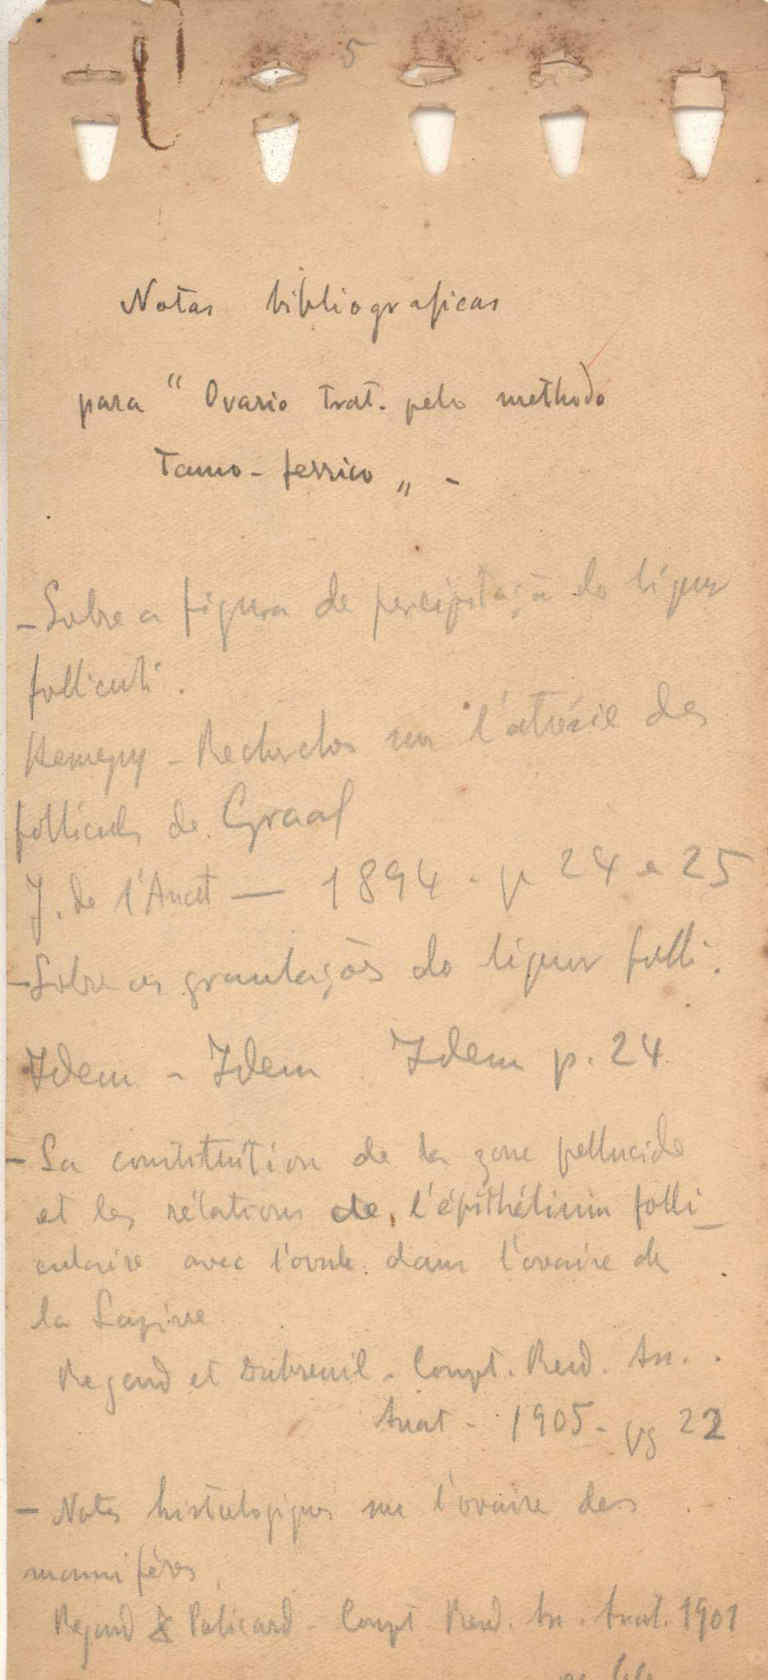 5
Notas bibliograficas
para "Ovario trat. pelo methodo
Tanno-ferrico" -
- Sobre a figura de percipitação do liquor
folliculi.
Henneguy - Recherches sur l'atrésie des
follicules de Graaf
J. de l'Anat - 1894 - p 24 e 25
- Sobre as granulações do liquor folli.
Idem - Idem Idem p. 24
- La constitution de la zone pellucide
et les rélations de l'épithélium folli_
culaire avec l'ovule dans l'ovaire de
la Lapine
Regaud et Dubreuil - Compt. Rend. As.
Anat - 1905 - pg 22
- Notes histologiques sur l'ovaire des
mammifères
Regaud & Policard - Compt Rend. As. Anat. 1901